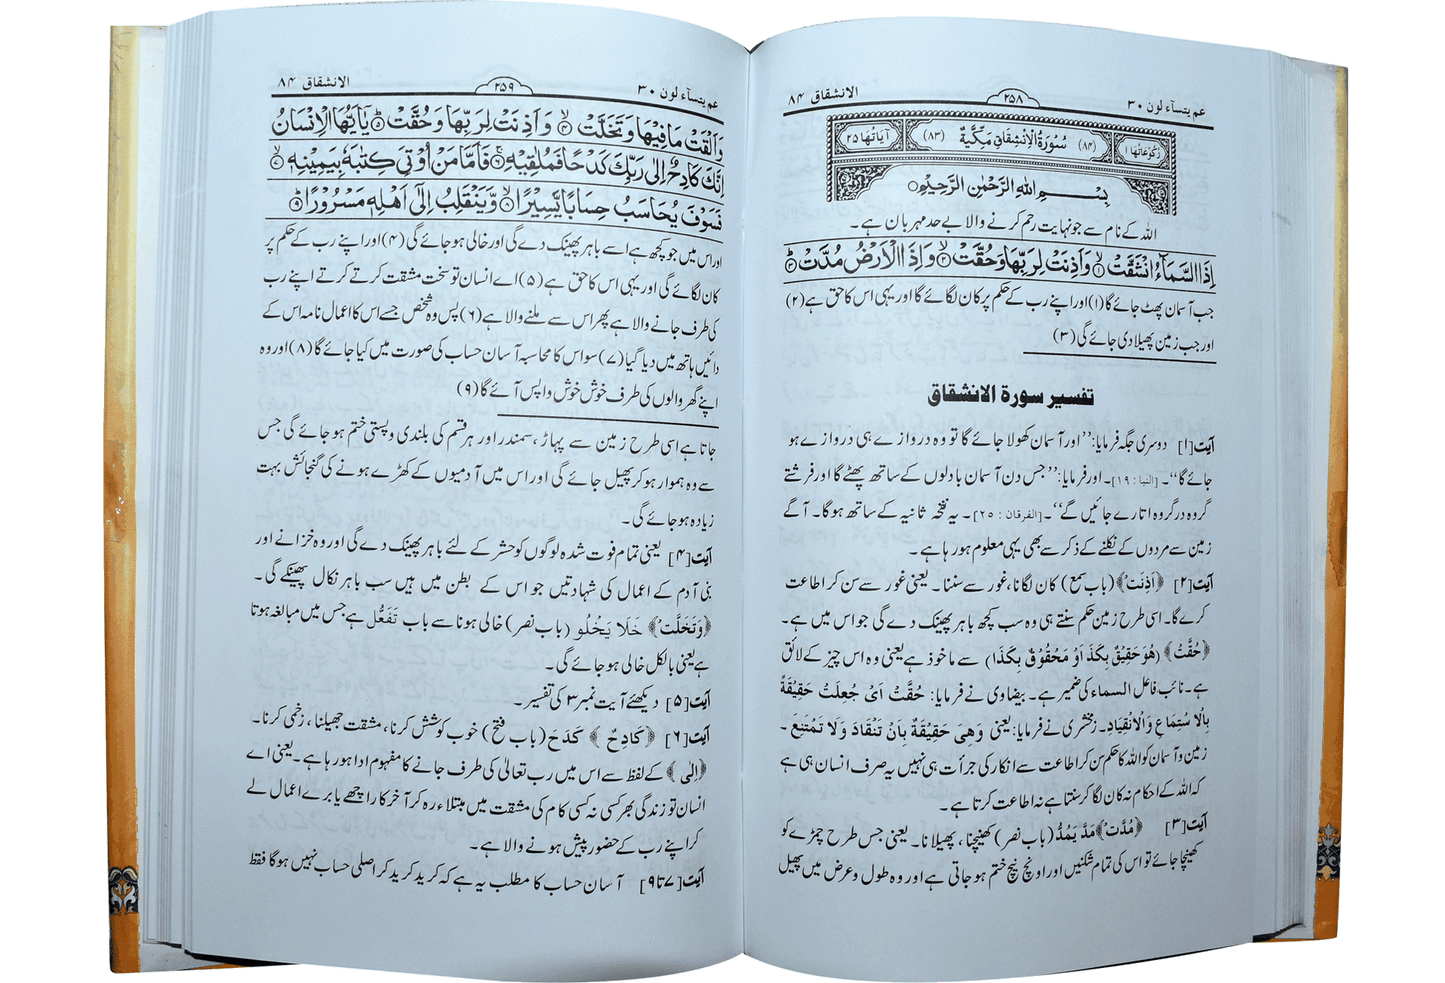 عم یتسآء لون ۳۰ ۲۵۸ الانشقاق ۸۴
رکوعاتھا ۱ (۸۴) سُوْرَةُ الْاِنْشِقَاقِ مَكِّيَّةٌ (۸۳) اٰیاتھا ۲۵
بِسْمِ اللهِ الرَّحْمٰنِ الرَّحِيْمِ
اللہ کے نام سے جو نہایت رحم کرنے والا بے حد مہربان ہے۔
اِذَا السَّمَآءُ انْشَقَّتْ ۝۱ وَاَذِنَتْ لِرَبِّهَا وَحُقَّتْ ۝۲ وَاِذَا الْاَرْضُ مُدَّتْ ۝۳
جب آسمان پھٹ جائے گا (۱) اور اپنے رب کے حکم پر کان لگائے گا اور یہی اس کا حق ہے (۲)
اور جب زمین پھیلا دی جائے گی (۳)
تفسیر سورة الانشقاق
آیت[۱] دوسری جگہ فرمایا: ’’اور آسمان کھولا جائے گا تو وہ دروازے ہی دروازے ہو
جائے گا‘‘۔ [النبا : ۱۹]۔ اور فرمایا: ’’جس دن آسمان بادلوں کے ساتھ پھٹے گا اور فرشتے
گروہ در گروہ اتارے جائیں گے‘‘۔ [الفرقان : ۲۵]۔ یہ نفخہ ثانیہ کے ساتھ ہوگا۔ آگے
زمین سے مردوں کے نکلنے کے ذکر سے بھی یہی معلوم ہو رہا ہے۔
آیت[۲] ﴿اَذِنَتْ﴾ (باب سمع) کان لگانا، غور سے سننا۔ یعنی غور سے سن کر اطاعت
کرے گا۔ اسی طرح زمین حکم سنتے ہی وہ سب کچھ باہر پھینک دے گی جو اس میں ہے۔
﴿حُقَّتْ﴾ (هُوَ حَقِيْقٌ بِكَذَا اَوْ مَحْقُوْقٌ بِكَذَا) سے ماخوذ ہے یعنی وہ اس چیز کے لائق
ہے۔ نائب فاعل السماء کی ضمیر ہے۔ بیضاوی نے فرمایا: حُقَّتْ اَیْ جُعِلَتْ حَقِيْقَةً
بِالْاِسْتِمَاعِ وَالْاِنْقِيَادِ۔ زمخشری نے فرمایا: یعنی وَهِیَ حَقِيْقَةٌ بِاَنْ تَنْقَادَ وَلَا تَمْتَنِعَ۔
زمین و آسمان کو اللہ کا حکم سن کر اطاعت سے انکار کی جرأت ہی نہیں یہ صرف انسان ہی ہے
کہ اللہ کے احکام نہ کان لگا کر سنتا ہے نہ اطاعت کرتا ہے۔
آیت[۳] ﴿مُدَّتْ﴾ مَدَّ يَمُدُّ (باب نصر) کھینچنا، پھیلانا۔ یعنی جس طرح چمڑے کو
کھینچا جائے تو اس کی تمام شکنیں اور اونچ نیچ ختم ہو جاتی ہے اور وہ طول و عرض میں پھیل
عم یتسآء لون ۳۰ ۲۵۹ الانشقاق ۸۴
وَاَلْقَتْ مَا فِيْهَا وَتَخَلَّتْ ۝۴ وَاَذِنَتْ لِرَبِّهَا وَحُقَّتْ ۝۵ يٰۤاَيُّهَا الْاِنْسَانُ
اِنَّكَ كَادِحٌ اِلٰى رَبِّكَ كَدْحًا فَمُلٰقِيْهِ ۝۶ فَاَمَّا مَنْ اُوْتِیَ كِتٰبَهٗ بِيَمِيْنِهٖ ۝۷
فَسَوْفَ يُحَاسَبُ حِسَابًا يَّسِيْرًا ۝۸ وَّيَنْقَلِبُ اِلٰۤى اَهْلِهٖ مَسْرُوْرًا ۝۹
اور اس میں جو کچھ ہے اسے باہر پھینک دے گی اور خالی ہو جائے گی (۴) اور اپنے رب کے حکم پر
کان لگائے گی اور یہی اس کا حق ہے (۵) اے انسان تو سخت مشقت کرتے کرتے اپنے رب
کی طرف جانے والا ہے پھر اس سے ملنے والا ہے (۶) پس وہ شخص جسے اس کا اعمال نامہ اس کے
دائیں ہاتھ میں دیا گیا (۷) سو اس کا محاسبہ آسان حساب کی صورت میں کیا جائے گا (۸) اور وہ
اپنے گھر والوں کی طرف خوش خوش واپس آئے گا (۹)
جاتا ہے اسی طرح زمین سے پہاڑ، سمندر اور ہر قسم کی بلندی و پستی ختم ہو جائے گی جس
سے وہ ہموار ہو کر پھیل جائے گی اور اس میں آدمیوں کے کھڑے ہونے کی گنجائش بہت
زیادہ ہو جائے گی۔
آیت[۴] یعنی تمام فوت شدہ لوگوں کو حشر کے لئے باہر پھینک دے گی اور وہ خزانے اور
بنی آدم کے اعمال کی شہادتیں جو اس کے بطن میں ہیں سب باہر نکال پھینکے گی۔
﴿وَتَخَلَّتْ﴾ خَلَا يَخْلُو (باب نصر) خالی ہونا سے باب تَفَعُّل ہے جس میں مبالغہ ہوتا
ہے یعنی بالکل خالی ہو جائے گی۔
آیت[۵] دیکھئے آیت نمبر ۳ کی تفسیر۔
آیت[۶] ﴿كَادِحٌ﴾ كَدَحَ (باب فتح) خوب کوشش کرنا، مشقت جھیلنا، زخمی کرنا۔
﴿اِلٰى﴾ کے لفظ سے اس میں رب تعالیٰ کی طرف جانے کا مفہوم ادا ہو رہا ہے۔ یعنی اے
انسان تو زندگی بھر کسی نہ کسی کام کی مشقت میں مبتلاء رہ کر آخر کار اچھے یا برے اعمال لے
کر اپنے رب کے حضور پیش ہونے والا ہے۔
آیت[۷ تا ۹] آسان حساب کا مطلب یہ ہے کہ کرید کرید کر اصلی حساب نہیں ہوگا فقط